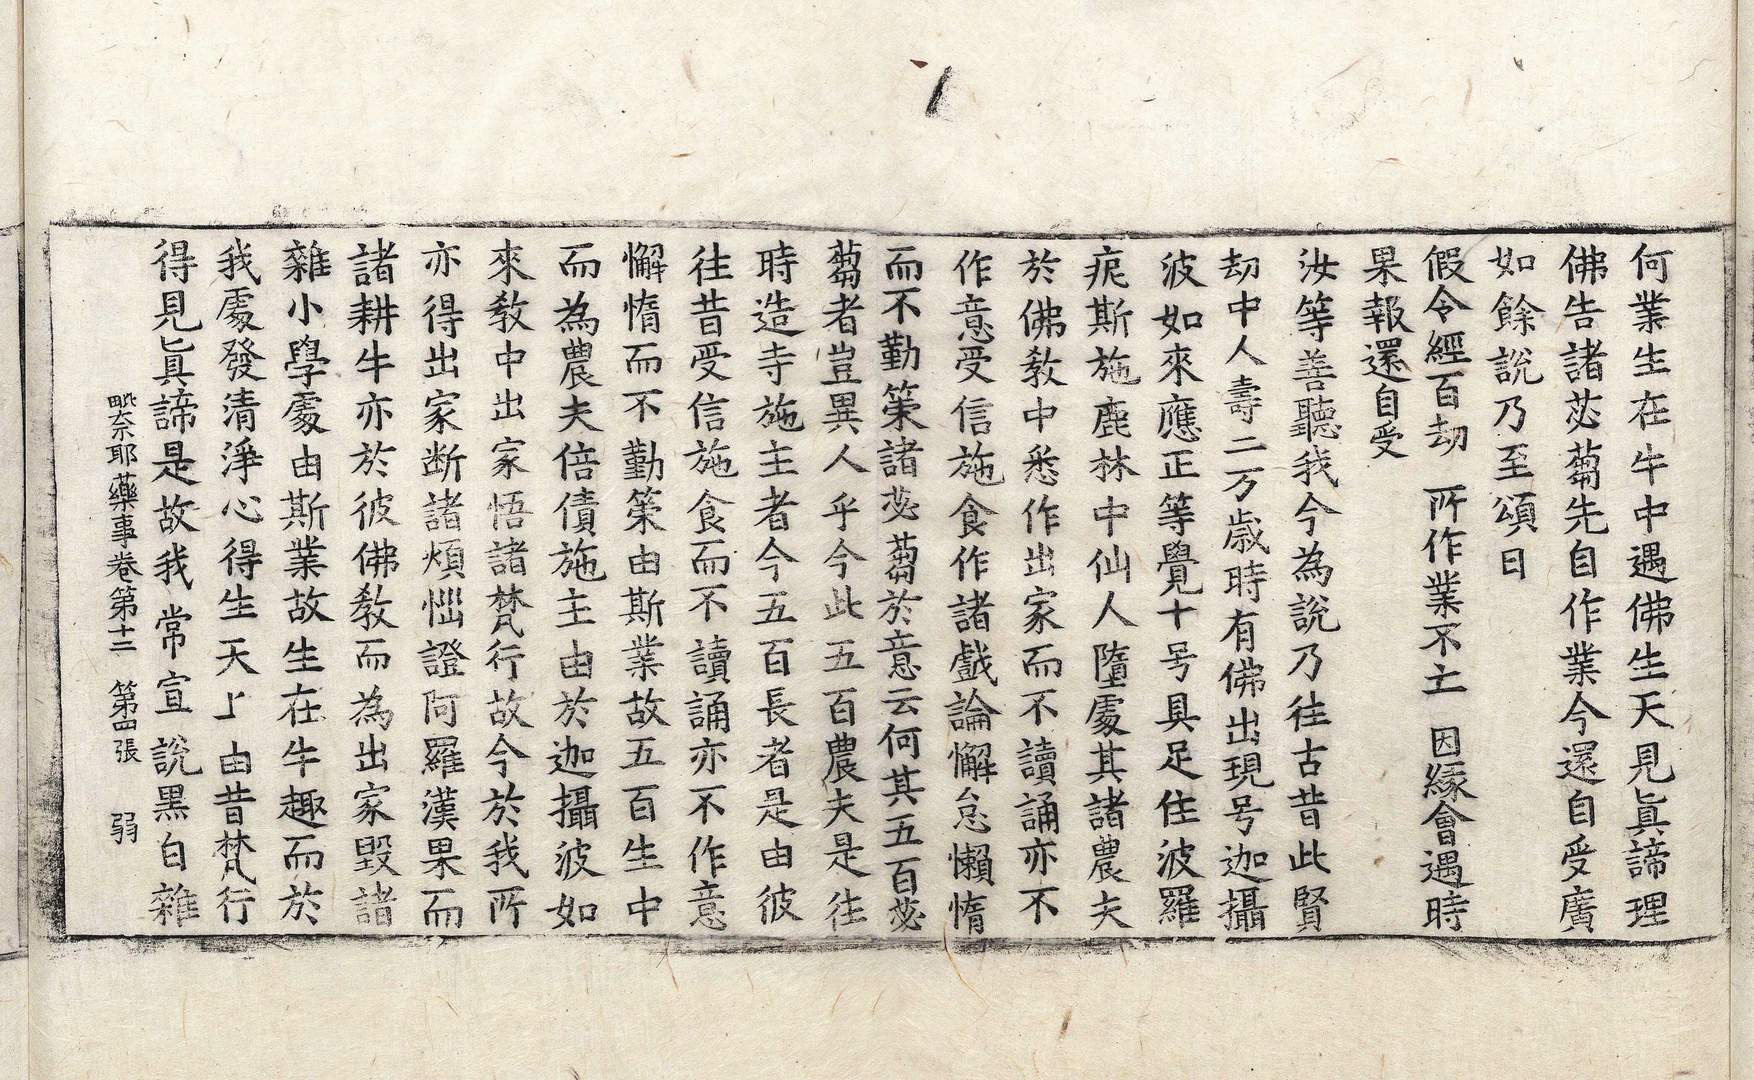 何業生在牛中遇佛生天見眞諦理
佛告諸苾蒭先自作業今還自受廣
如餘說乃至頌曰
假令經百劫　所作業不亡　因緣會遇時
果報還自受
汝等善聽我今為說乃往古昔此賢
劫中人壽二万歲時有佛出現号迦攝
波如來應正等覺十号具足住波羅
痆斯施鹿林中仙人墮處其諸農夫
於佛教中悉作出家而不讀誦亦不
作意受信施食作諸戲論懈怠懶惰
而不勤策諸苾蒭於意云何其五百苾
蒭者豈異人乎今此五百農夫是往
時造寺施主者今五百長者是由彼
往昔受信施食而不讀誦亦不作意
懈惰而不勤策由斯業故五百生中
而為農夫倍債施主由於迦攝波如
來教中出家悟諸梵行故今於我所
亦得出家断諸煩惱證阿羅漢果而
諸耕牛亦於彼佛教而為出家毀諸
雜小學處由斯業故生在牛趣而於
我處發清淨心得生天上由昔梵行
得見眞諦是故我常宣說黑白雜
毗奈耶藥事卷第十二　第四張　弱